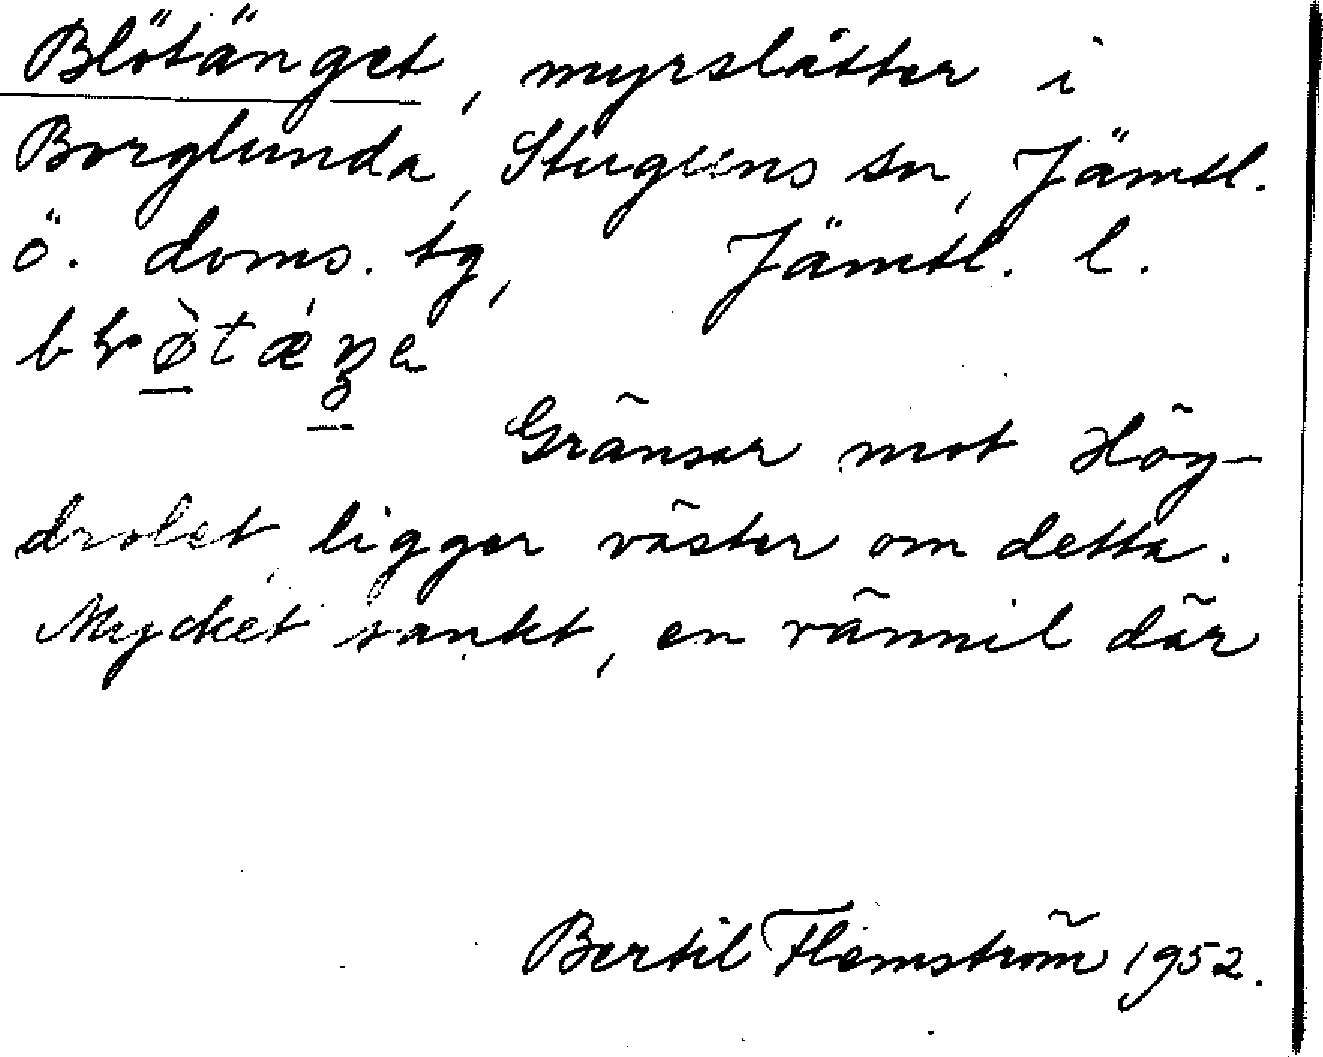 Blötänget, myrslåtter i
Borglunda, Stuguns sn, Jämtl.
ö. doms. tg, Jämtl. l.
Gränsar mot Hög-
drolet, ligger väster om detta.
Mycket sankt, en rännil där
Bertil Flemström 1952.